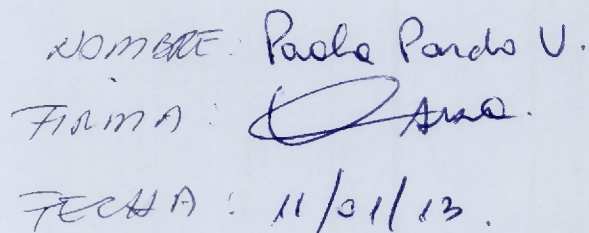 NOMBRE: Paola Pardo V.
FIRMA:
FECHA: 11/01/13.